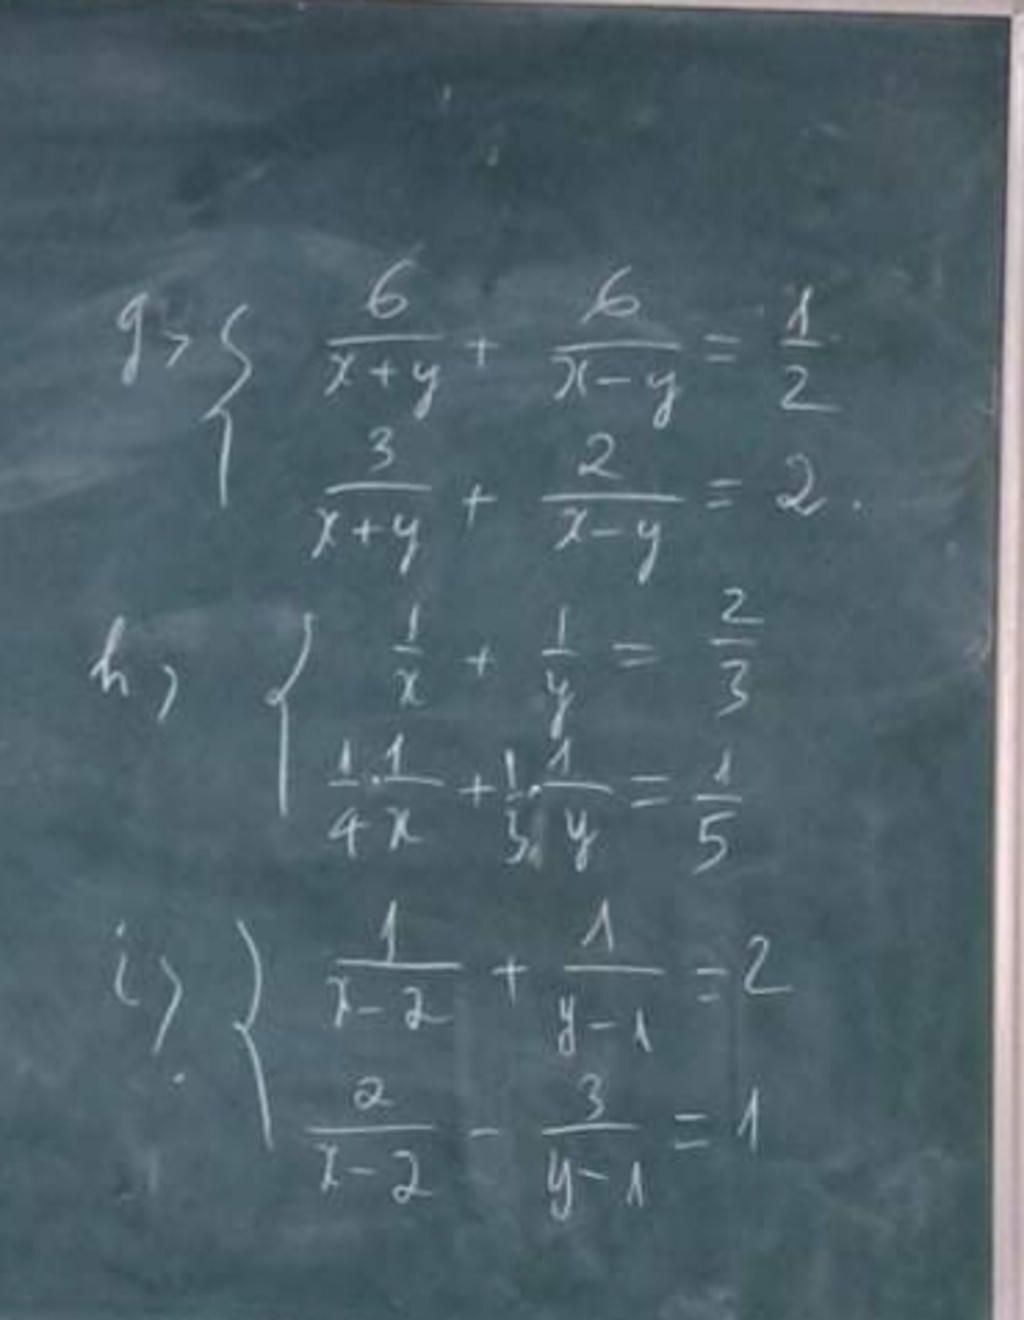 g, { 6/(x+y) + 6/(x-y) = 1/2
3/(x+y) + 2/(x-y) = 2.
h, { 1/x + 1/y = 2/3
1/4 · 1/x + 1/3 · 1/y = 1/5
i, { 1/(x-2) + 1/(y-1) = 2
2/(x-2) - 3/(y-1) = 1